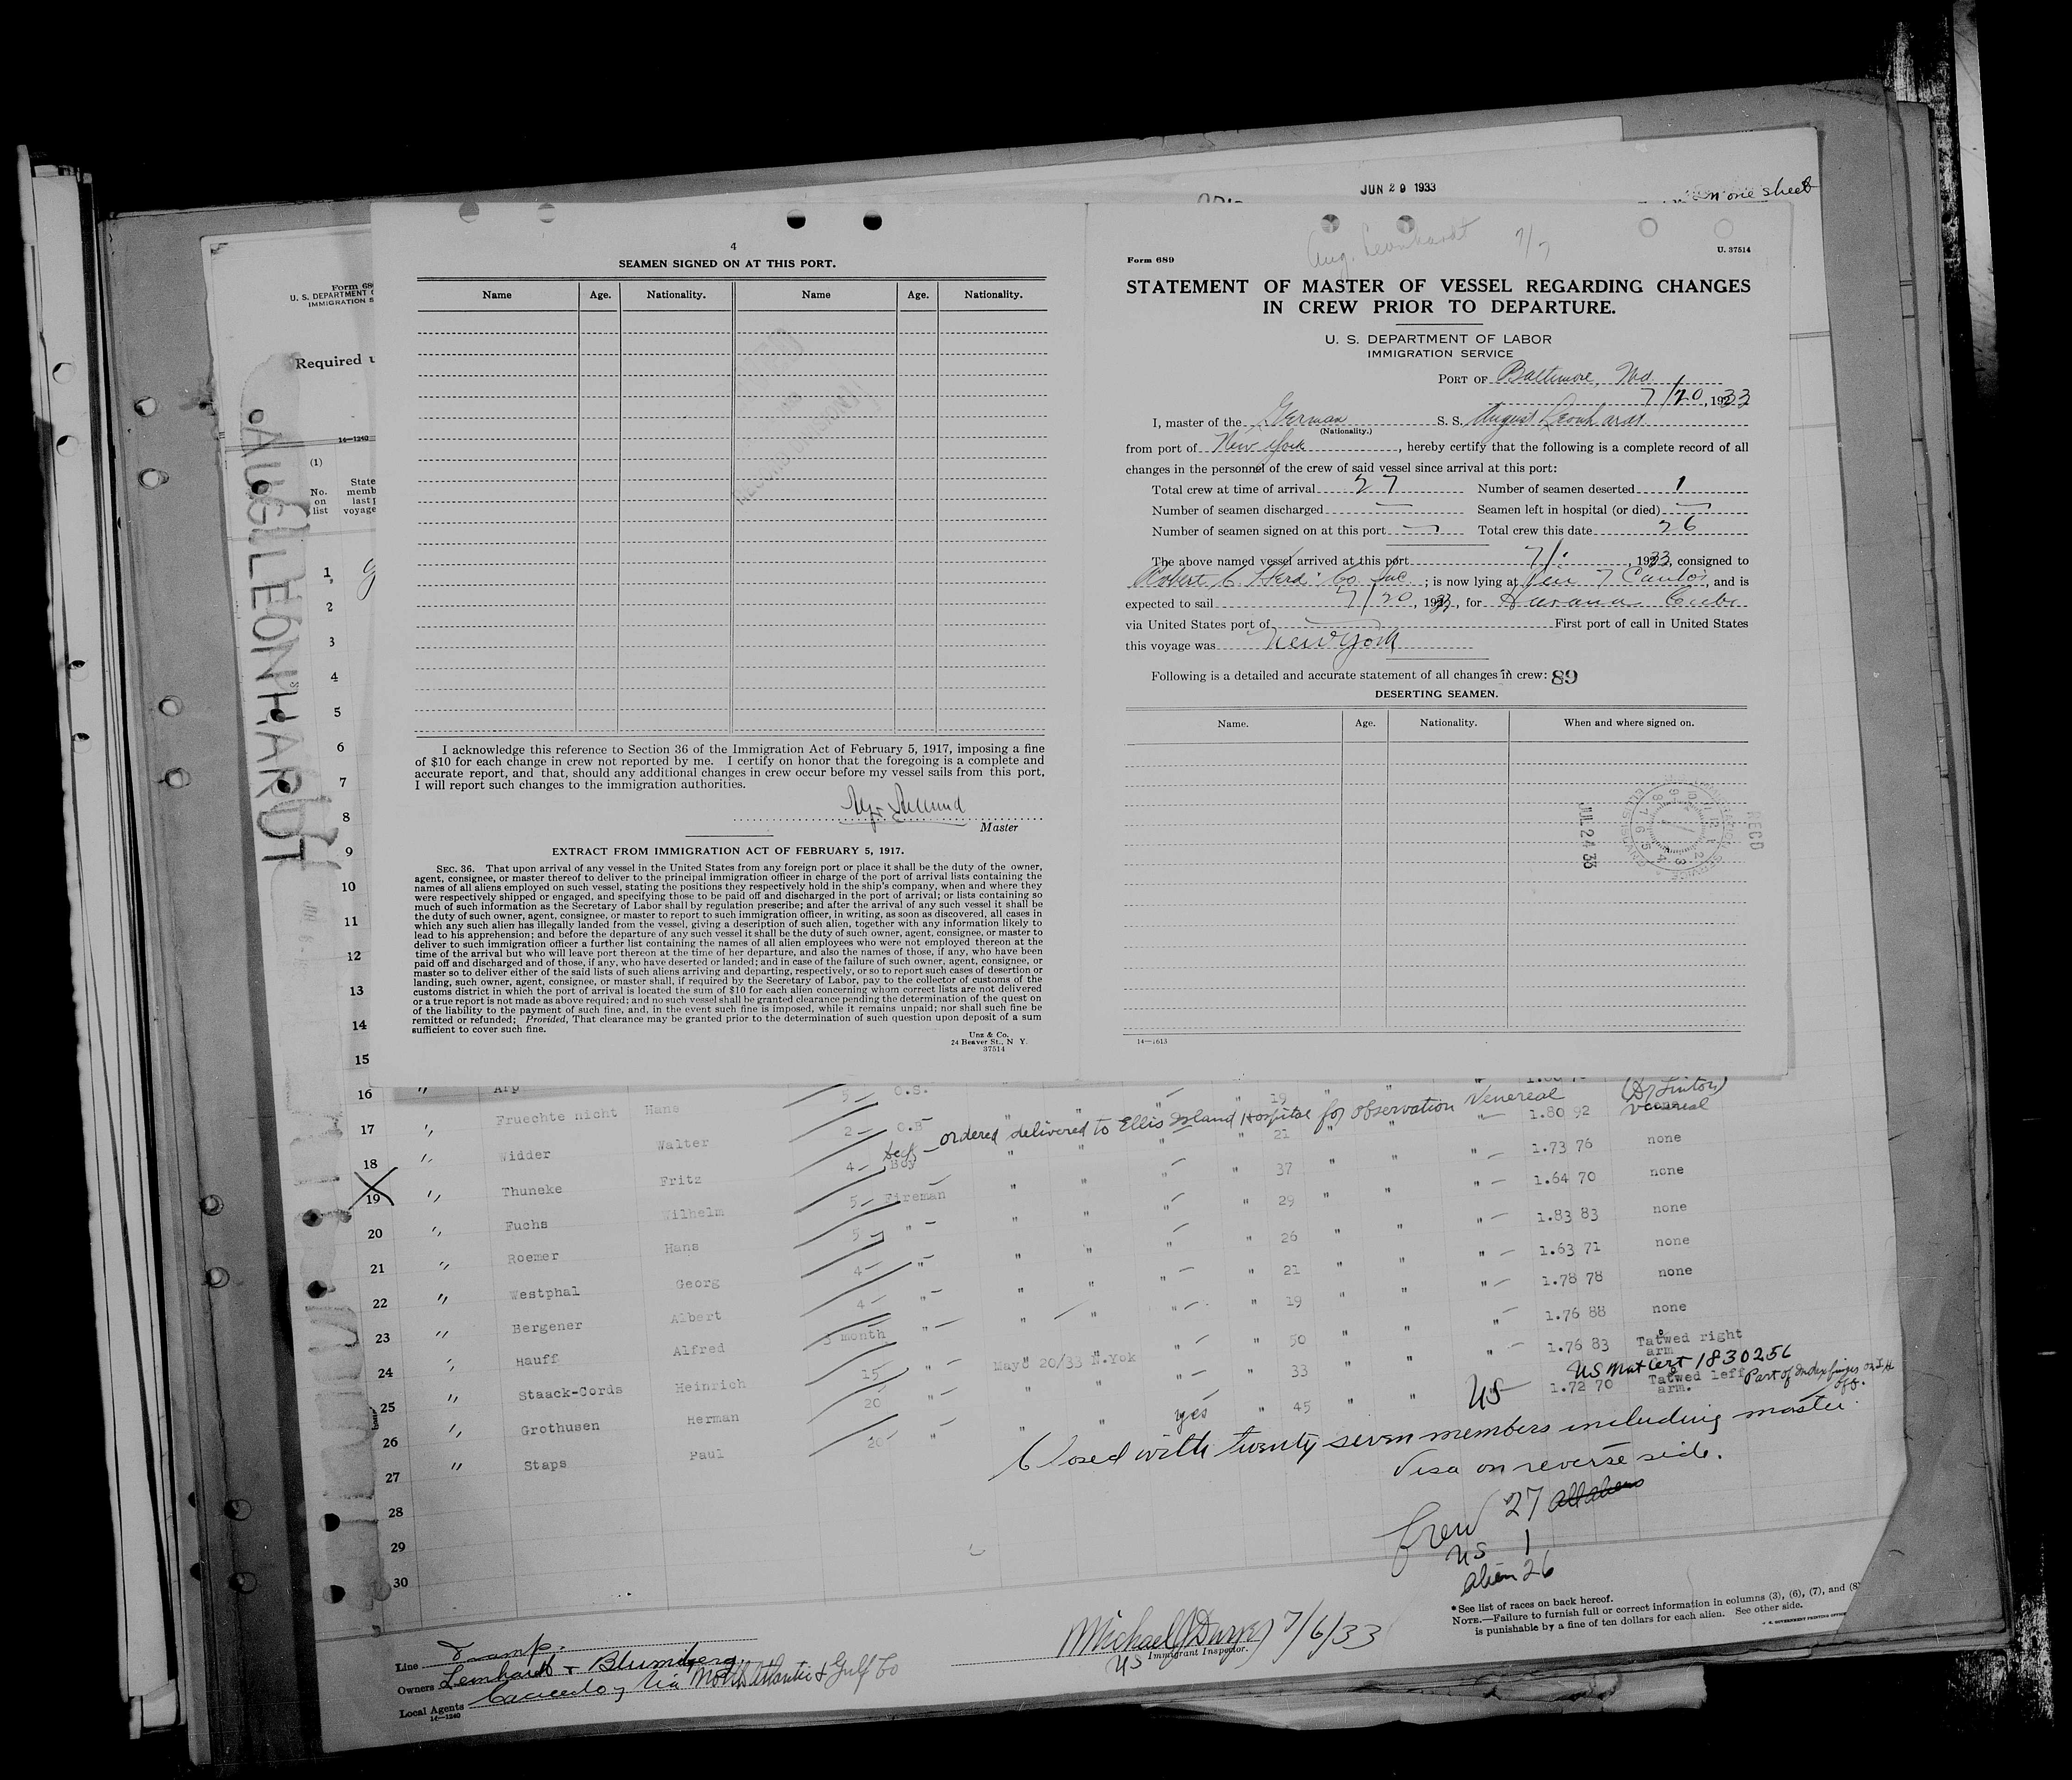 JUN 29 1933
n one sheet
Form 68
U. S. DEPARTMENT
IMMIGRATION S
Required u
14-1240
(1)
No. on list
State memb last p voyage
AUG. LEONHARDT
4
SEAMEN SIGNED ON AT THIS PORT.
Name Age. Nationality. Name Age. Nationality.
I acknowledge this reference to Section 36 of the Immigration Act of February 5, 1917, imposing a fine
of $10 for each change in crew not reported by me. I certify on honor that the foregoing is a complete and
accurate report, and that, should any additional changes in crew occur before my vessel sails from this port,
I will report such changes to the immigration authorities.
Master
EXTRACT FROM IMMIGRATION ACT OF FEBRUARY 5, 1917.
SEC. 36. That upon arrival of any vessel in the United States from any foreign port or place it shall be the duty of the owner,
agent, consignee, or master thereof to deliver to the principal immigration officer in charge of the port of arrival lists containing the
names of all aliens employed on such vessel, stating the positions they respectively hold in the ship's company, when and where they
were respectively shipped or engaged, and specifying those to be paid off and discharged in the port of arrival; or lists containing so
much of such information as the Secretary of Labor shall by regulation prescribe; and after the arrival of any such vessel it shall be
the duty of such owner, agent, consignee, or master to report to such immigration officer, in writing, as soon as discovered, all cases in
which any such alien has illegally landed from the vessel, giving a description of such alien, together with any information likely to
lead to his apprehension; and before the departure of any such vessel it shall be the duty of such owner, agent, consignee, or master to
deliver to such immigration officer a further list containing the names of all alien employees who were not employed thereon at the
time of the arrival but who will leave port thereon at the time of her departure, and also the names of those, if any, who have been
paid off and discharged and of those, if any, who have deserted or landed; and in case of the failure of such owner, agent, consignee, or
master so to deliver either of the said lists of such aliens arriving and departing, respectively, or so to report such cases of desertion or
landing, such owner, agent, consignee, or master shall, if required by the Secretary of Labor, pay to the collector of customs of the
customs district in which the port of arrival is located the sum of $10 for each alien concerning whom correct lists are not delivered
or a true report is not made as above required; and no such vessel shall be granted clearance pending the determination of the quest on
of the liability to the payment of such fine, and, in the event such fine is imposed, while it remains unpaid; nor shall such fine be
remitted or refunded; Provided, That clearance may be granted prior to the determination of such question upon deposit of a sum
sufficient to cover such fine.
Unz & Co.
24 Beaver St., N Y.
37514
Aug. Leonhardt 7/7
Form 689
U. 37514
STATEMENT OF MASTER OF VESSEL REGARDING CHANGES
IN CREW PRIOR TO DEPARTURE.
U. S. DEPARTMENT OF LABOR
IMMIGRATION SERVICE
PORT OF Baltimore, Md
7/20, 1933
I, master of the German S. S. August Leonhardt
(Nationality.)
from port of New York, hereby certify that the following is a complete record of all
changes in the personnel of the crew of said vessel since arrival at this port:
Total crew at time of arrival 27 Number of seamen deserted 1
Number of seamen discharged — Seamen left in hospital (or died) —
Number of seamen signed on at this port — Total crew this date 26
The above named vessel arrived at this port 7/ , 1933, consigned to
Robert C Herd Co Inc; is now lying at Pier 7 Canton, and is
expected to sail 7/20, 1933, for Havana Cuba
via United States port of First port of call in United States
this voyage was New York
Following is a detailed and accurate statement of all changes in crew: 89
DESERTING SEAMEN.
Name. Age. Nationality. When and where signed on.
JUL 24 33
RECD
14-1613
1
2
3
4
5
6
7
8
9
10
11
12
13
14
15
16 " Arp 5 O.S. 19
17 " Fruechte nicht Hans 2 O.S 1.80 92 venereal
(Dr Linton)
ordered delivered to Ellis Island Hospital for observation Venereal
18 " Widder Walter 4 Boy 21 1.73 76 none
19 " Thuneke Fritz 5 Fireman 37 1.64 70 none
20 " Fuchs Wilhelm 5 " 29 1.83 83 none
21 " Roemer Hans 4 " 26 1.63 71 none
22 " Westphal Georg 4 " 21 1.78 78 none
23 " Bergener Albert 3 month " 19 1.76 88 none
24 " Hauff Alfred 15 " May 20/33 N.Yok 50 1.76 83 Tatwed right arm
US Nat Cert 1830256
25 " Staack-Cords Heinrich 20 " 33 US 1.72 70 Tatwed left arm. Part of Index finger on L H off.
26 " Grothusen Herman 20 " yes 45
27 " Staps Paul
28
29
30
Closed with twenty seven members including master.
Visa on reverse side.
Crew 27 all aliens
US 1
alien 26
*See list of races on back hereof.
NOTE.—Failure to furnish full or correct information in columns (3), (6), (7), and (8)
is punishable by a fine of ten dollars for each alien. See other side.
7/6/33
US Immigrant Inspector.
Line Tramp.
Owners Leonhardt & Blumberg
Local Agents via North Atlantic & Gulf Co
14-1240